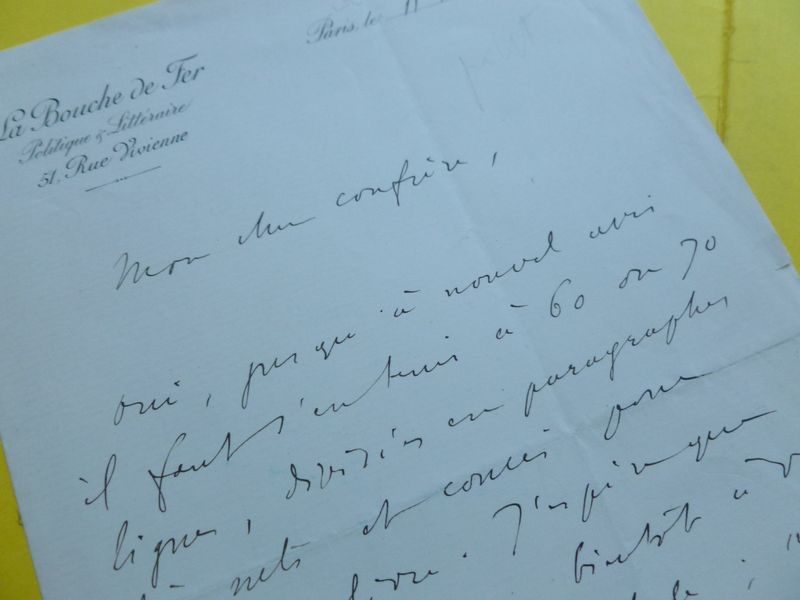 La Bouche de Fer
Politique & Littéraire
51, Rue Vivienne
Paris, le 11
Mon cher confrère,
oui, jusqu'à nouvel avis
il faut s'en tenir à 60 ou 70
lignes, divisées en paragraphes
nets et concis pour
J'espère que
bientôt à